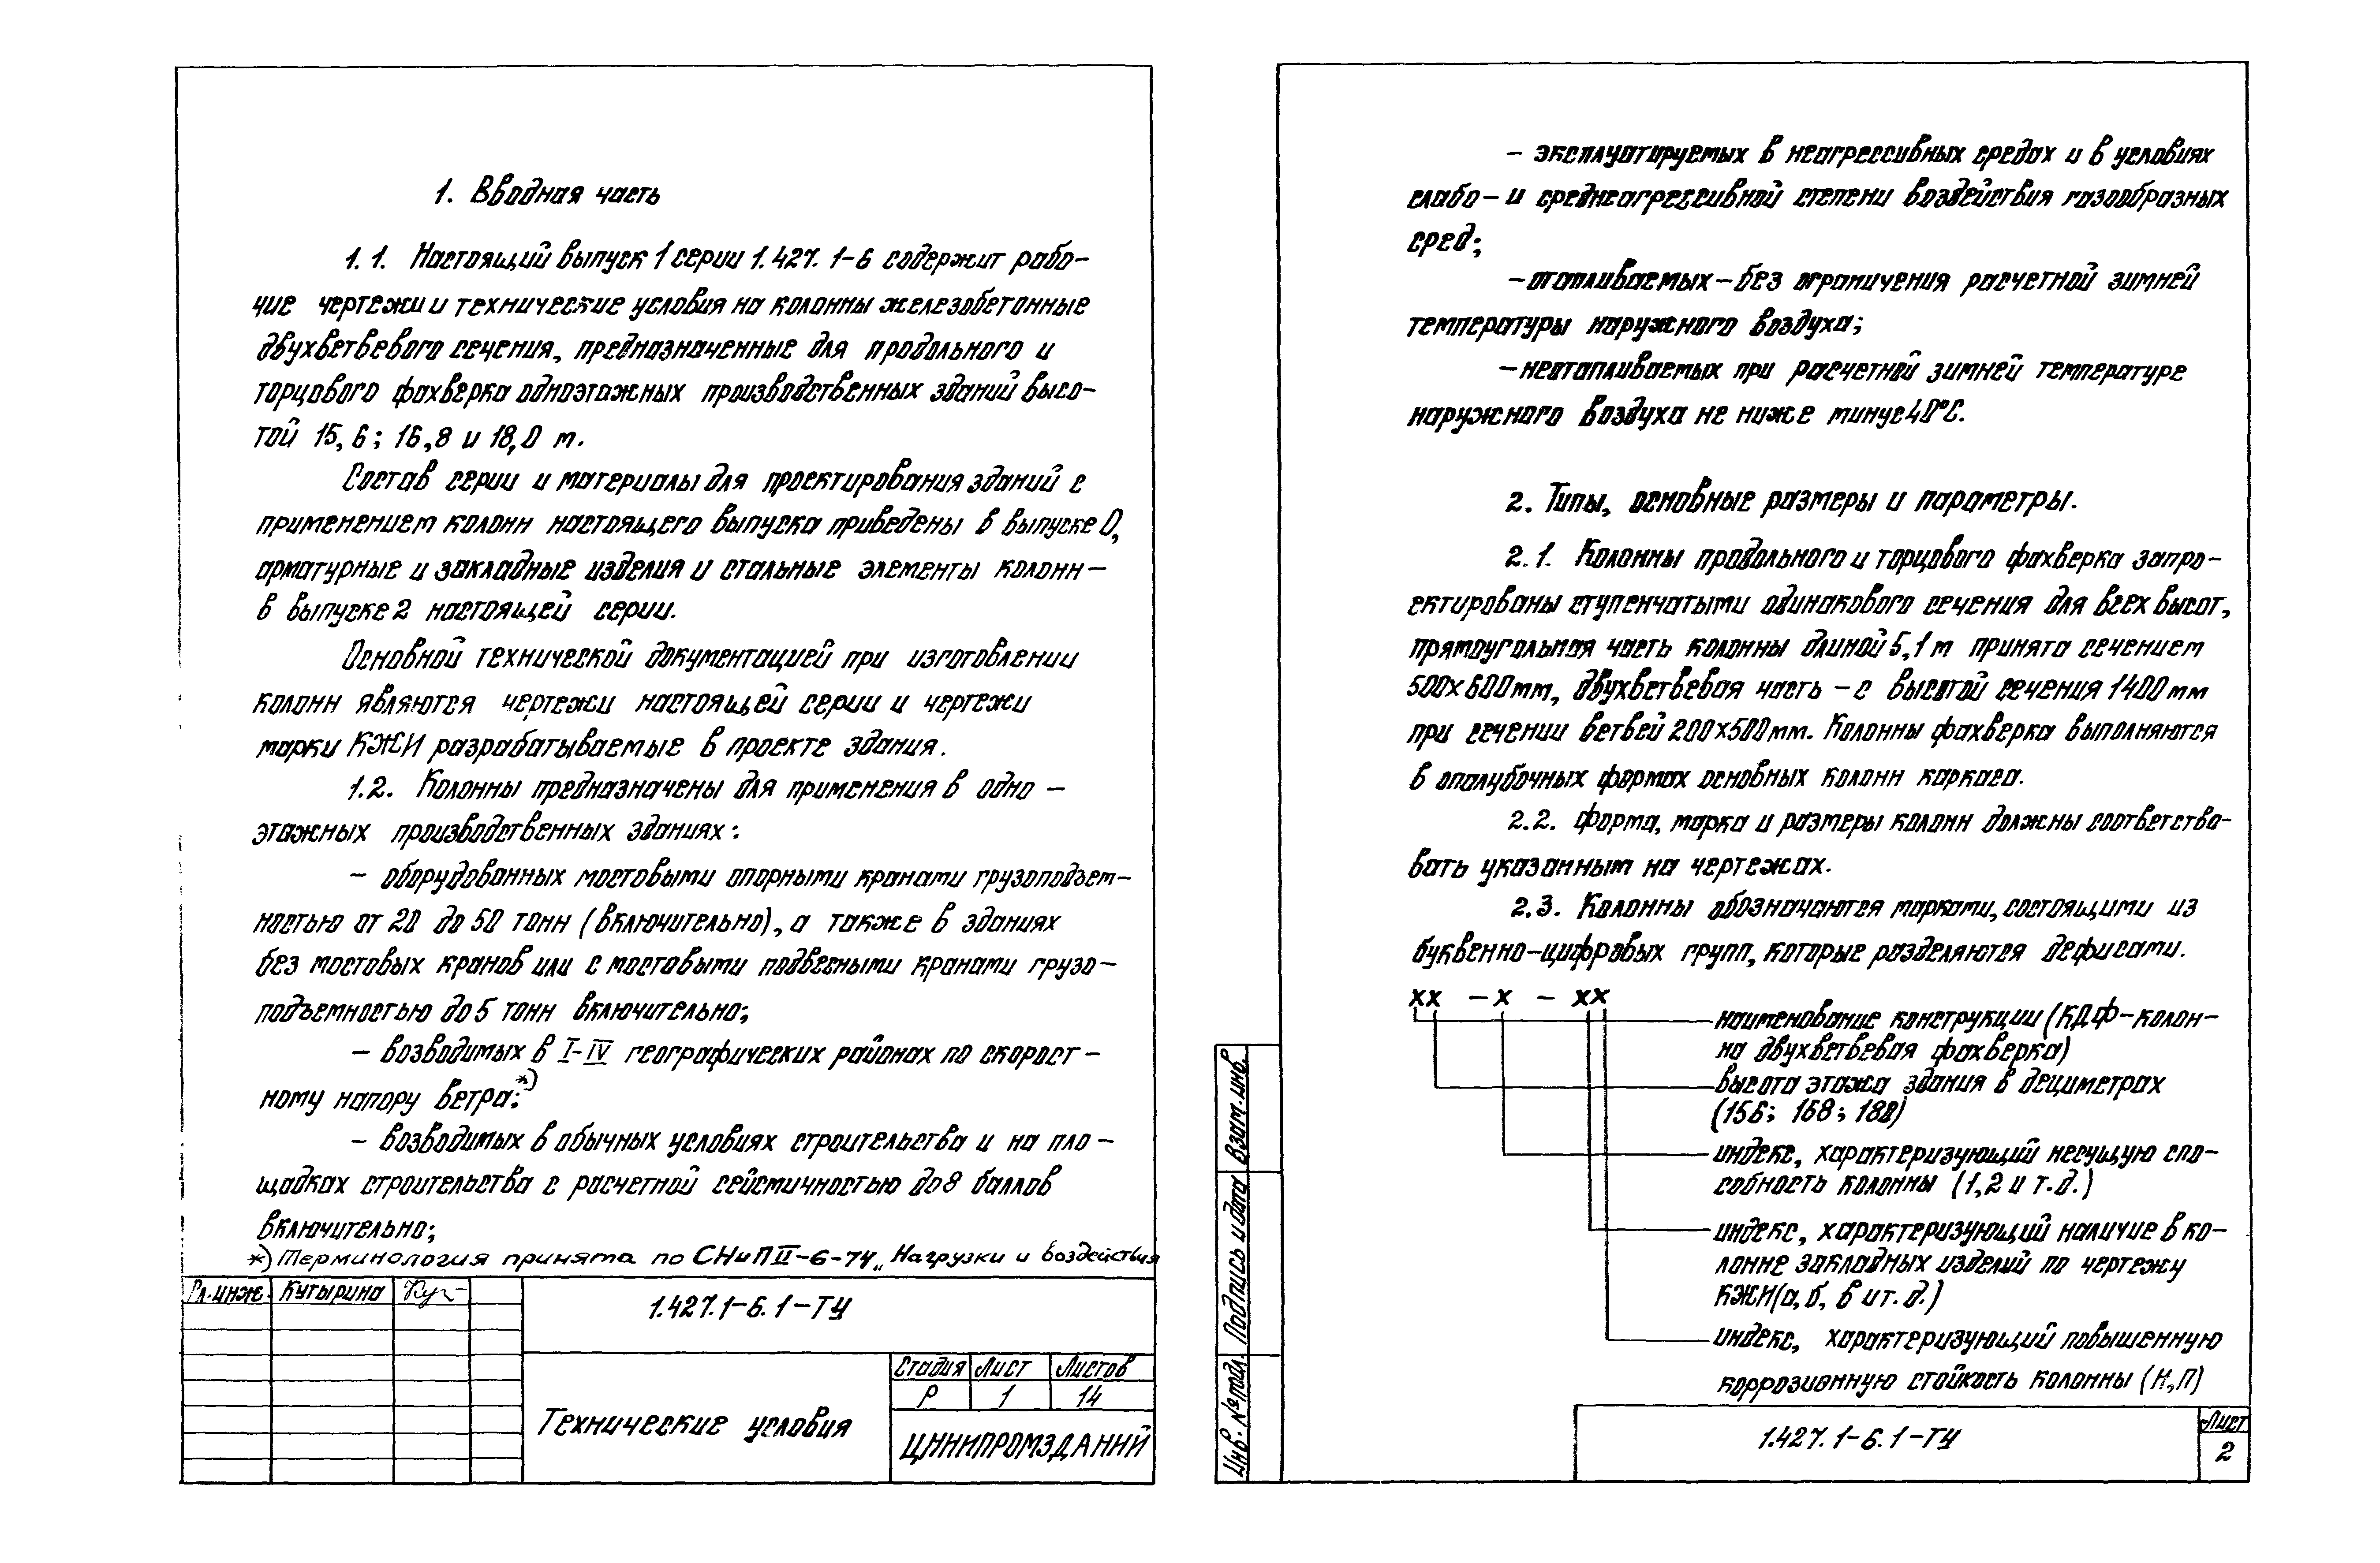 1. Вводная часть
1.1. Настоящий выпуск 1 серии 1.427.1-6 содержит рабо-
чие чертежи и технические условия на колонны железобетонные
двухветвевого сечения, предназначенные для продольного и
торцового фахверка одноэтажных производственных зданий высо-
той 15,6; 16,8 и 18,0 м.
Состав серии и материалы для проектирования зданий с
применением колонн настоящего выпуска приведены в выпуске 0,
арматурные и закладные изделия и стальные элементы колонн-
в выпуске 2 настоящей серии.
Основной технической документацией при изготовлении
колонн являются чертежи настоящей серии и чертежи
марки КЖИ разрабатываемые в проекте здания.
1.2. Колонны предназначены для применения в одно-
этажных производственных зданиях:
- оборудованных мостовыми опорными кранами грузоподъем-
ностью от 20 до 50 тонн (включительно), а также в зданиях
без мостовых кранов или с мостовыми подвесными кранами грузо-
подъемностью до 5 тонн включительно;
- возводимых в I-IV географических районах по скорост-
ному напору ветра;*)
- возводимых в обычных условиях строительства и на пло-
щадках строительства с расчетной сейсмичностью до 8 баллов
включительно;
*) Терминология принята по СНиП II-6-74 „Нагрузки и воздействия
Гл.инж. Кутырина
1.427.1-6.1-ТУ
Технические условия
Стадия Лист Листов
Р 1 14
ЦНИИПРОМЗДАНИЙ
- эксплуатируемых в неагрессивных средах и в условиях
слабо- и среднеагрессивной степени воздействия газообразных
сред;
- отапливаемых - без ограничения расчетной зимней
температуры наружного воздуха;
- неотапливаемых при расчетной зимней температуре
наружного воздуха не ниже минус 40°С.
2. Типы, основные размеры и параметры.
2.1. Колонны продольного и торцового фахверка запро-
ектированы ступенчатыми одинакового сечения для всех высот,
прямоугольная часть колонны длиной 5,1 м принята сечением
500×600мм, двухветвевая часть - с высотой сечения 1400 мм
при сечении ветвей 200×500мм. Колонны фахверка выполняются
в опалубочных формах основных колонн каркаса.
2.2. Форма, марка и размеры колонн должны соответство-
вать указанным на чертежах.
2.3. Колонны обозначаются марками, состоящими из
буквенно-цифровых групп, которые разделяются дефисами.
хх - х - хх
наименование конструкции (КДФ-колон-
на двухветвевая фахверка)
высота этажа здания в дециметрах
(156; 168; 180)
индекс, характеризующий несущую спо-
собность колонны (1,2 и т.д.)
индекс, характеризующий наличие в ко-
лонне закладных изделий по чертежу
КЖИ (а, б, в и т.д.)
индекс, характеризующий повышенную
коррозионную стойкость колонны (Н,П)
Взам.инв.
Подпись и дата
Инв. № подл.
1.427.1-6.1-ТУ
Лист
2